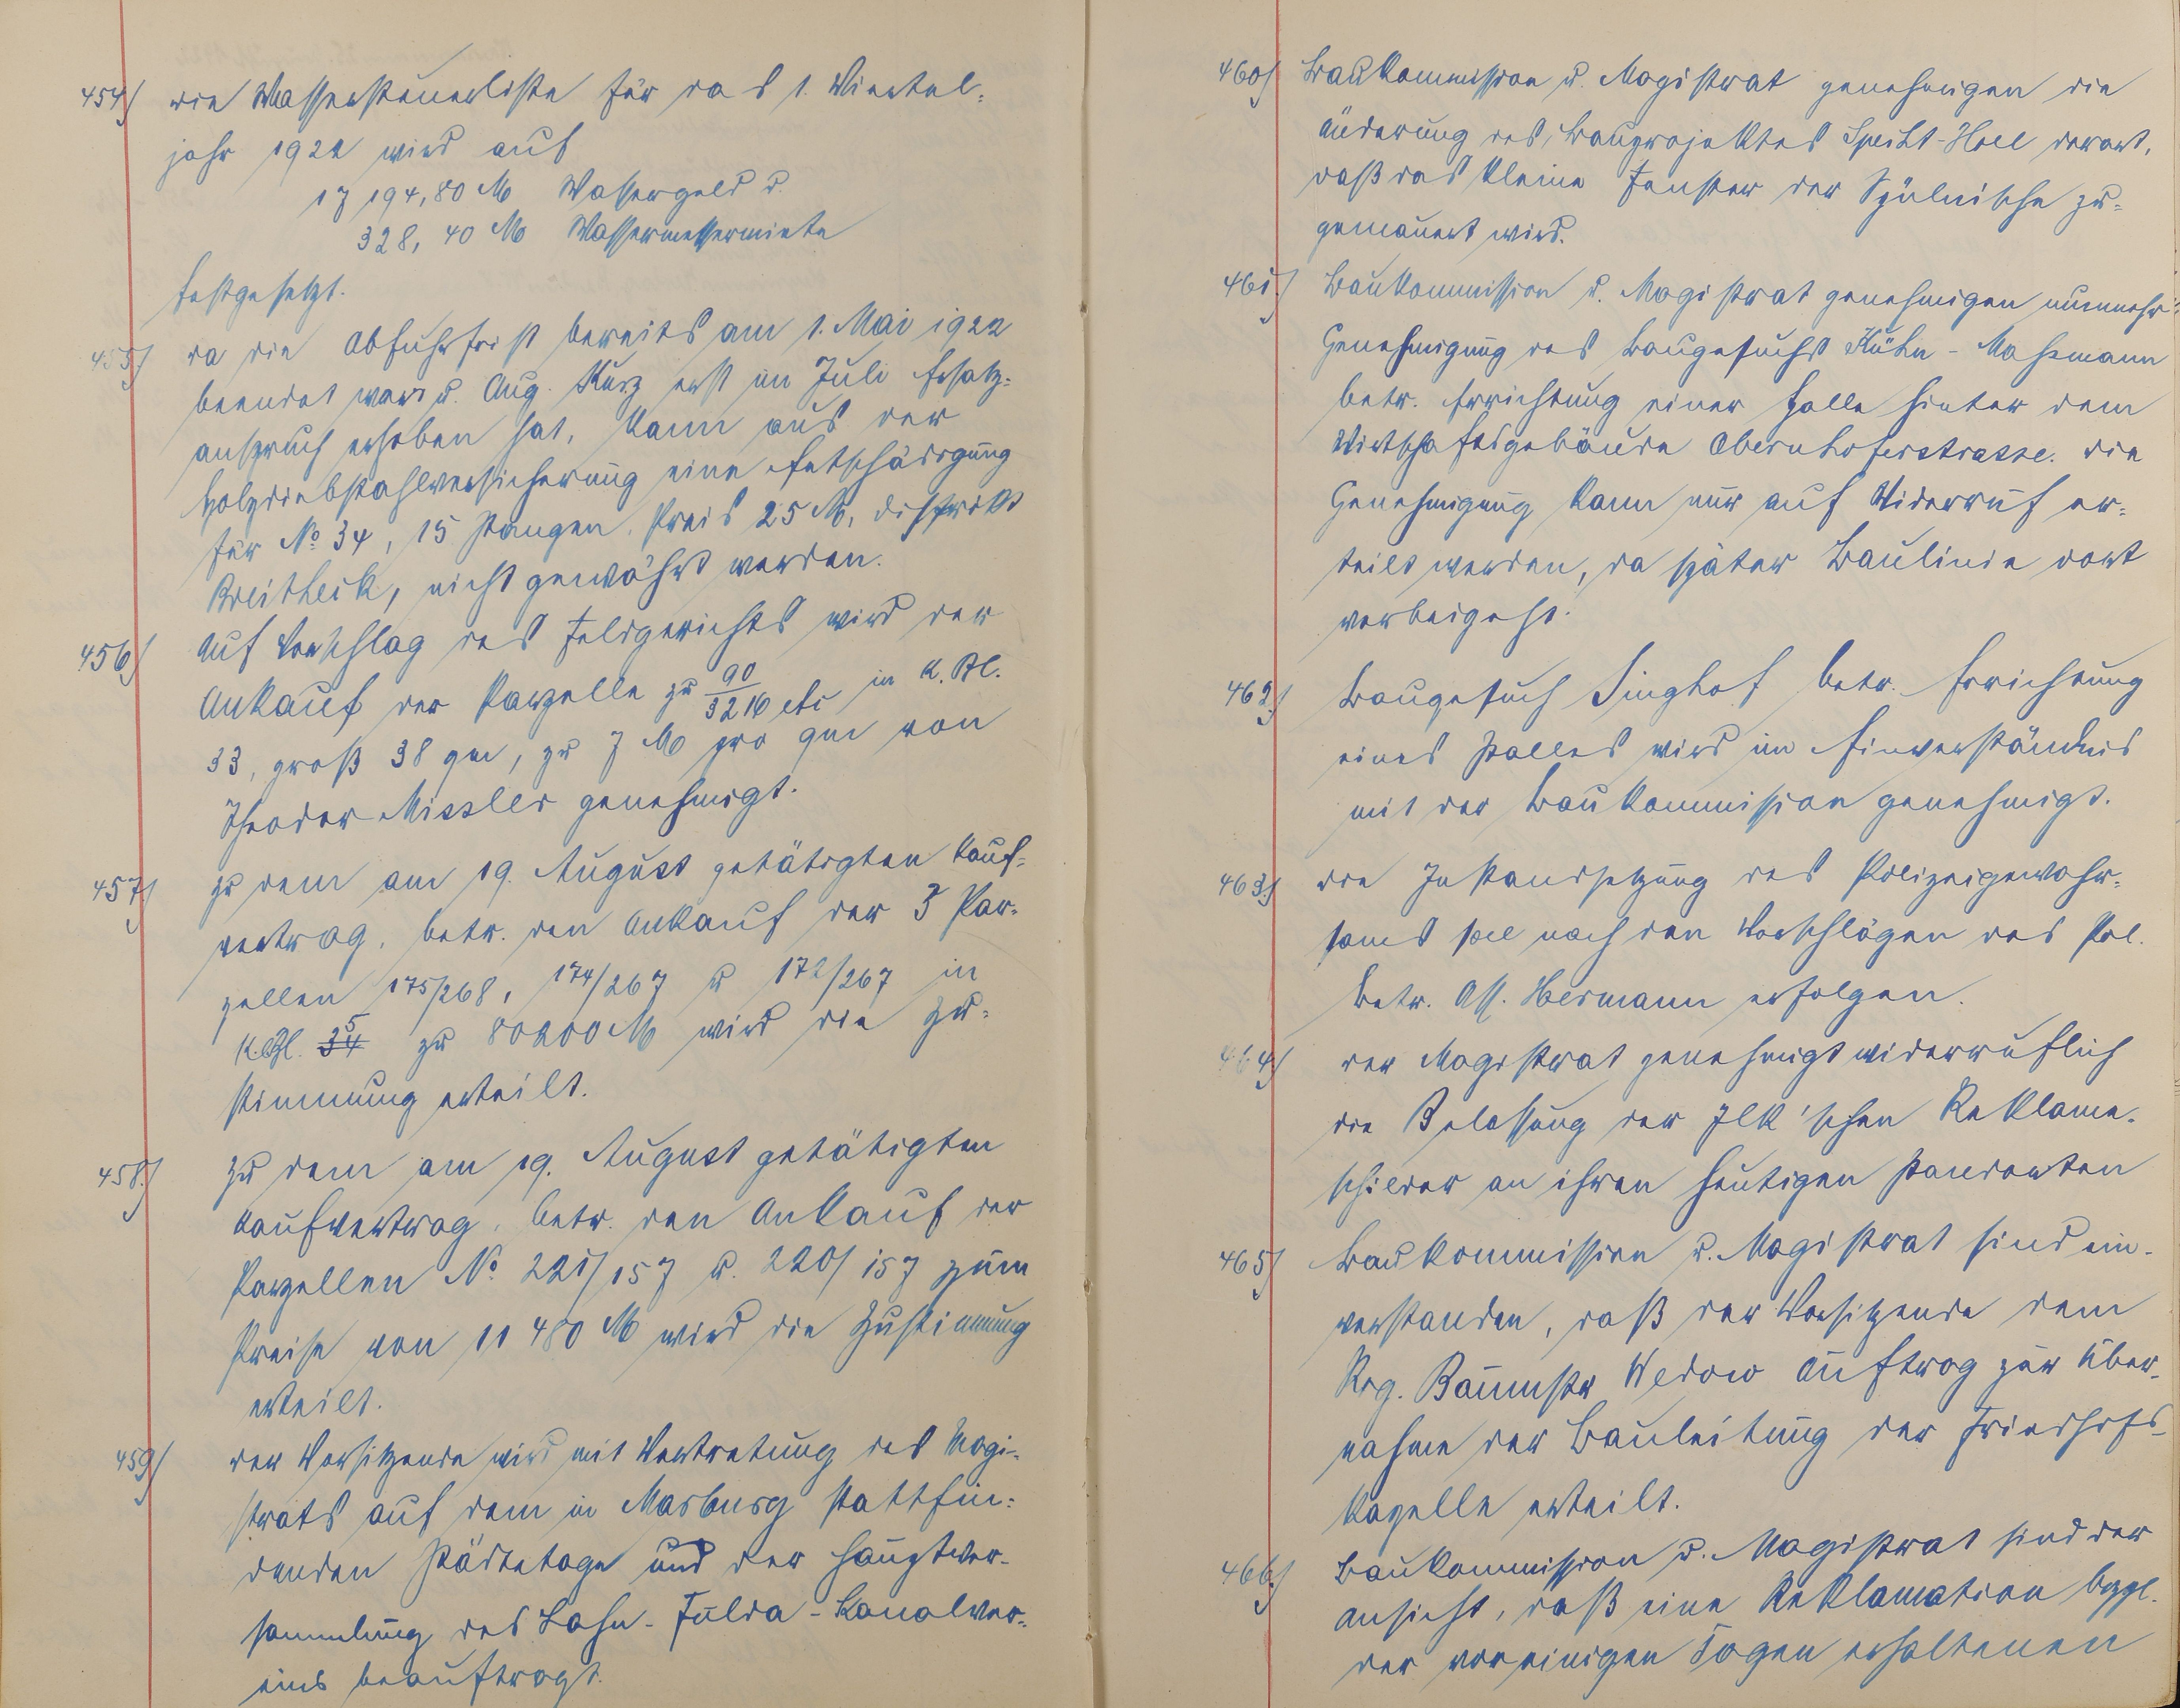 454) Die Wassersteuerliste für das 1. Viertel-
jahr 1922 wird auf
17 194,80 M Wassergeld u.
328,40 M Wassermessermiete
festgesetzt.
455) Da die Abfuhrfrist bereits am 1. Mai 1922
beendet war u. Aug. Kurz erst im Juli Ersatz-
anspruch erhoben hat, kann aus der
Holzdiebstahlversicherung eine Entschädigung
für No 34, 15 Stangen, Preis 25 M, Distrikt
Breitheck, nicht gewährt werden.
456) Auf Vorschlag des Feldgerichts wird der
Ankauf der Parzelle zu 90/3216 etc in K. Bl.
33, groß 38 qm, zu 7 M pro qm von
Theodor Missler genehmigt.
457) Zu dem am 19. August getätigten Kauf-
vertrag, betr. den Ankauf der 3 Par-
zellen 175/268, 174/267 u 172/267 in
K.Bl. 34 5 zu 80200 M wird die Zu-
stimmung erteilt.
458.) Zu dem am 19. August getätigten
Kaufvertrag, betr. den Ankauf der
Parzellen No 221/157 u. 220/157 zum
Preise von 11 480 M wird die Zustimmung
erteilt.
459) Der Vorsitzende wird mit Vertretung des Magi-
strats auf dem in Marburg stattfin-
denden Städtetage und der Hauptver-
sammlung des Lahn-Fulda-Kanalver-
eins beauftragt.
460) Baukommission u. Magistrat genehmigen die
Änderung des Bauprojektes Specht-Holl derart,
daß das kleine Fenster der Spülnische zu-
gemauert wird.
461.) Baukommission u. Magistrat genehmigen nunmehr
Genehmigung des Baugesuchs Kühn-Massmann
betr. Errichtung einer Halle hinter dem
Wirtschaftsgebäude Obernhoferstrasse. Die
Genehmigung kann nur auf Widerruf er-
teilt werden, da später Baulinie dort
vorbeigeht.
462.) Baugesuch Singhof betr. Errichtung
eines Stalles wird im Einverständnis
mit der Baukommission genehmigt.
463.) Die Instandsetzung des Polizeigewahr-
sams soll nach den Vorschlägen des Pol.
Betr. Ass. Hermann erfolgen.
464) Der Magistrat genehmigt widerruflich
die Belassung der Ilk'schen Reklame-
schilder an ihren heutigen Standorten
465) Baukommission u. Magistrat sind ein-
verstanden, daß der Vorsitzende dem
Reg. Baumstr Wedow Auftrag zur Über-
nahme der Bauleitung der Friedhofs-
kapelle erteilt.
466.) Baukommission u. Magistrat sind der
Ansicht, daß eine Reklamation bzgl.
der vor einigen Tagen erhaltenen